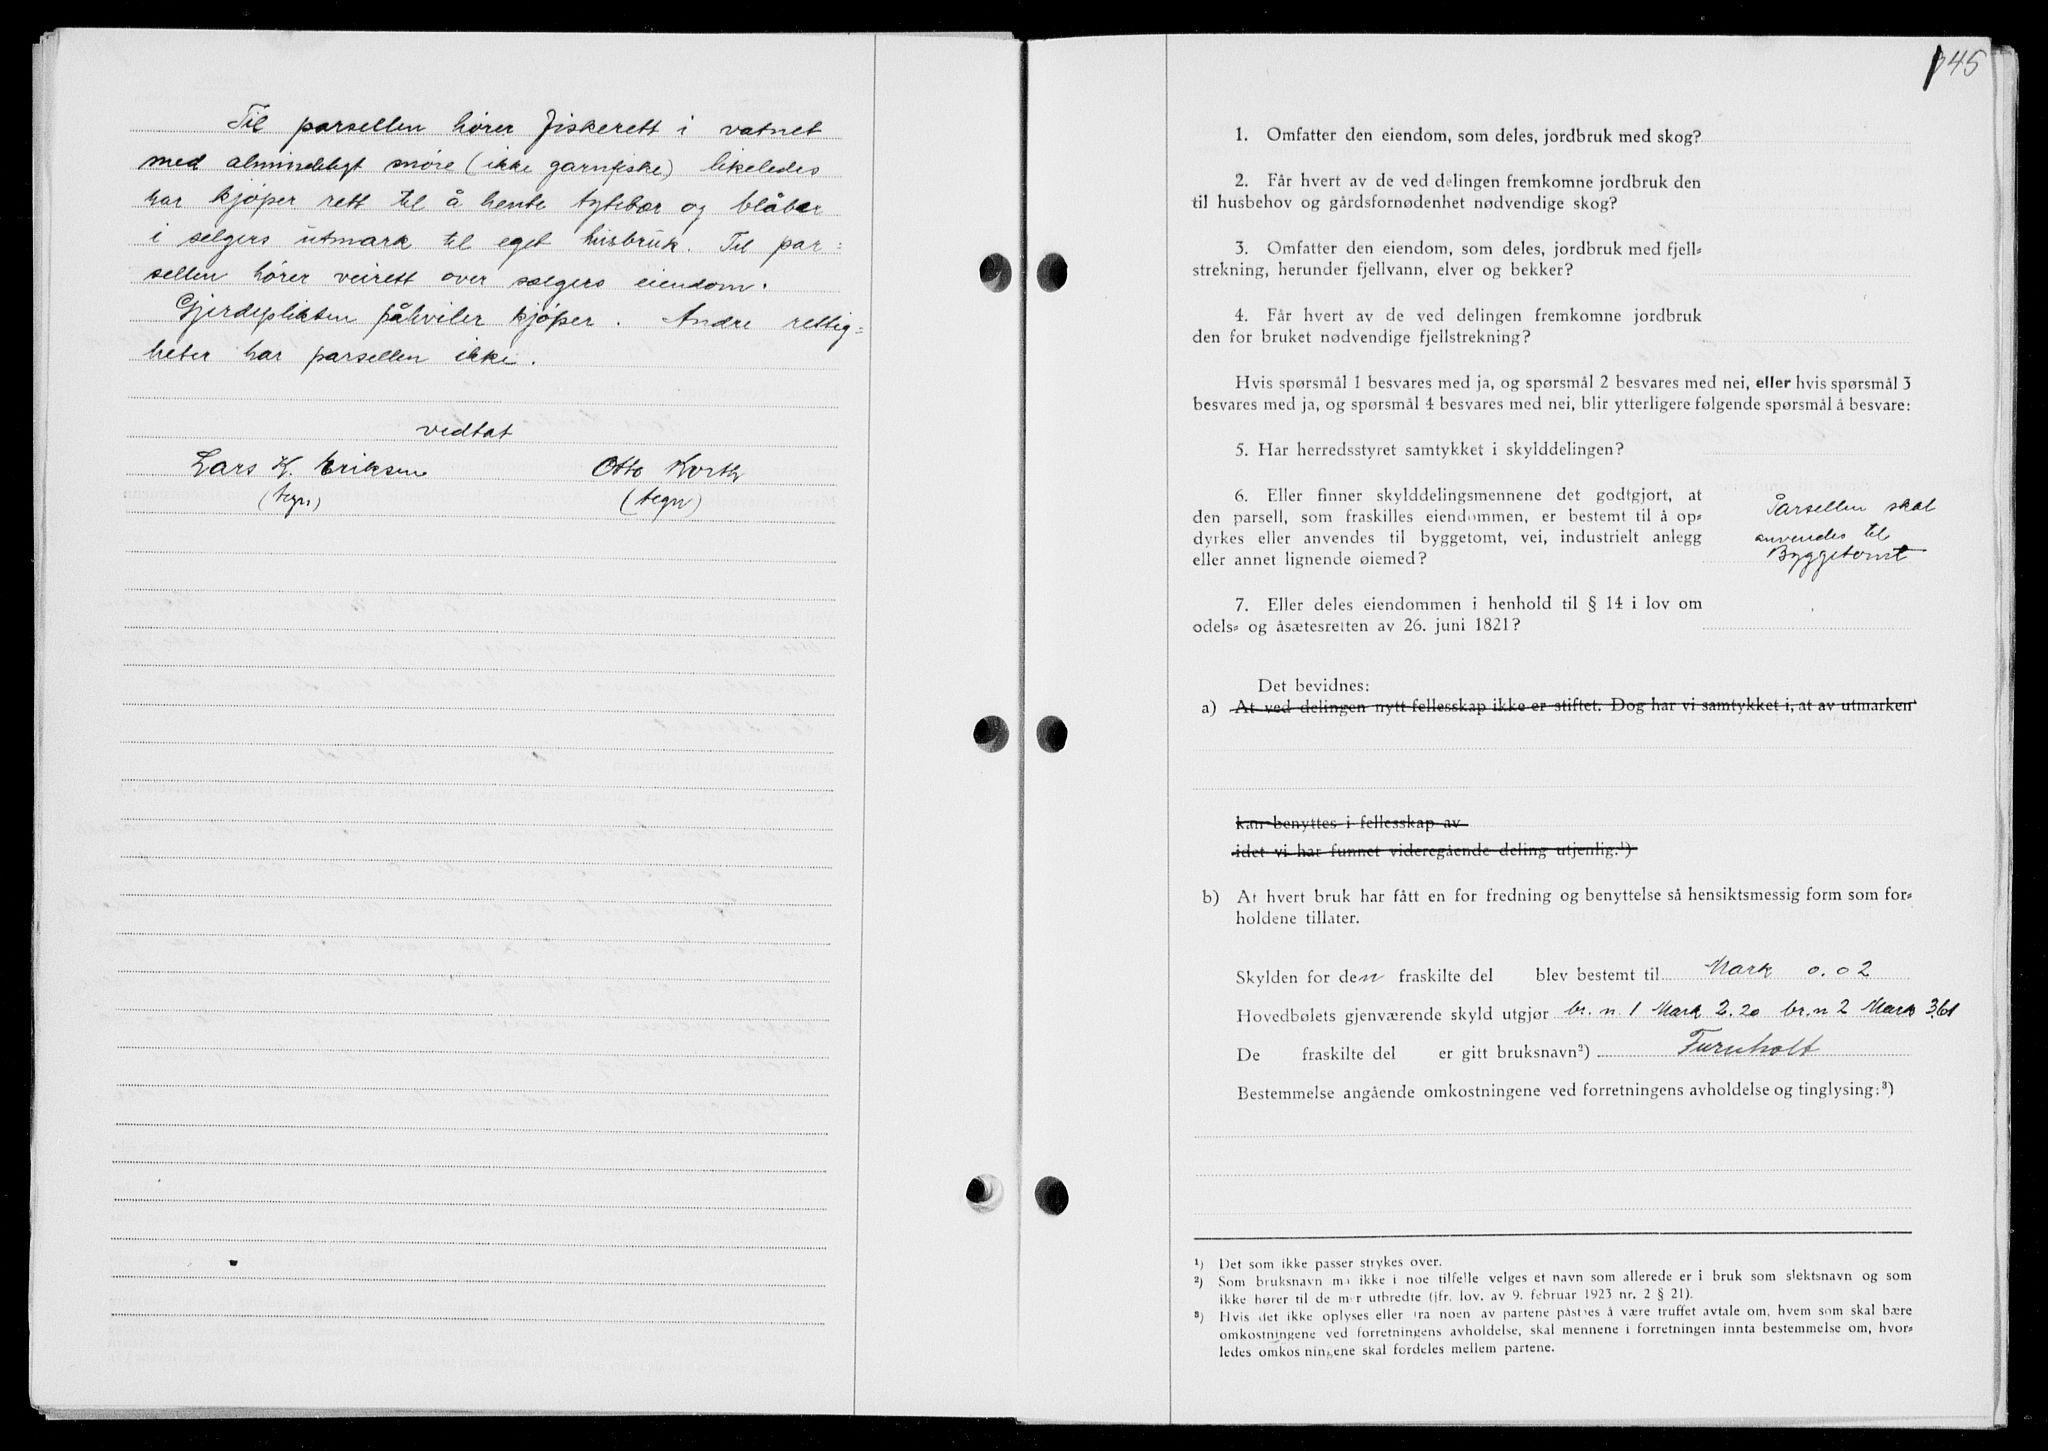 Til parsellen hører fiskerett i vatnet
med almindeligt snøre (ikke garnfiske) likeledes
har kjøper rett til å hente tytebær og blåbær
i selgers utmark til eget husbruk. Til par=
sellen hører veirett over sælgers eiendom.
Gjerdeplikten påhviler kjøper. Andre rettig=
heter har parsellen ikke.
vedtat
Lars K. Eriksen Otto Korth
(tegn) (tegn)
345
1. Omfatter den eiendom, som deles, jordbruk med skog?
2. Får hvert av de ved delingen fremkomne jordbruk den
til husbehov og gårdsfornødenhet nødvendige skog?
3. Omfatter den eiendom, som deles, jordbruk med fjell=
strekning, herunder fjellvann, elver og bekker?
4. Får hvert av de ved delingen fremkomne jordbruk
den for bruket nødvendige fjellstrekning?
Hvis spørsmål 1 besvares med ja, og spørsmål 2 besvares med nei, eller hvis spørsmål 3
besvares med ja, og spørsmål 4 besvares med nei, blir ytterligere følgende spørsmål å besvare:
5. Har herredsstyret samtykket i skylddelingen?
6. Eller finner skylddelingsmennene det godtgjort, at
den parsell, som fraskilles eiendommen, er bestemt til å op=
dyrkes eller anvendes til byggetomt, vei, industrielt anlegg
eller annet lignende øiemed?
Parsellen skal
anvendes til
Byggetomt
7. Eller deles eiendommen i henhold til § 14 i lov om
odels= og åsætesretten av 26. juni 1821?
Det bevidnes:
a) At ved delingen nytt fellesskap ikke er stiftet. Dog har vi samtykket i, at av utmarken
kan benyttes i fellesskap av
idet vi har funnet videregående deling utjenlig.¹)
b) At hvert bruk har fått en for fredning og benyttelse så hensiktsmessig form som for=
holdene tillater.
Skylden for den fraskilte del blev bestemt til Mark 0.02
Hovedbølets gjenværende skyld utgjør br. n. 1 Mark 2.20 br. n 2 Mark 3.61
De fraskilte del er gitt bruksnavn²) Furuholt
Bestemmelse angående omkostningene ved forretningens avholdelse og tinglysing:³)
¹) Det som ikke passer strykes over.
²) Som bruksnavn må ikke i noe tilfelle velges et navn som allerede er i bruk som slektsnavn og som
ikke hører til de mer utbredte (jfr. lov. av 9. februar 1923 nr. 2 § 21).
³) Hvis det ikke oplyses eller fra noen av partene påstnes å være truffet avtale om, hvem som skal bære
omkostningene ved forretningens avholdelse, skal mennene i forretningen innta bestemmelse om, hvor=
ledes omkostningene skal fordeles mellem partene.